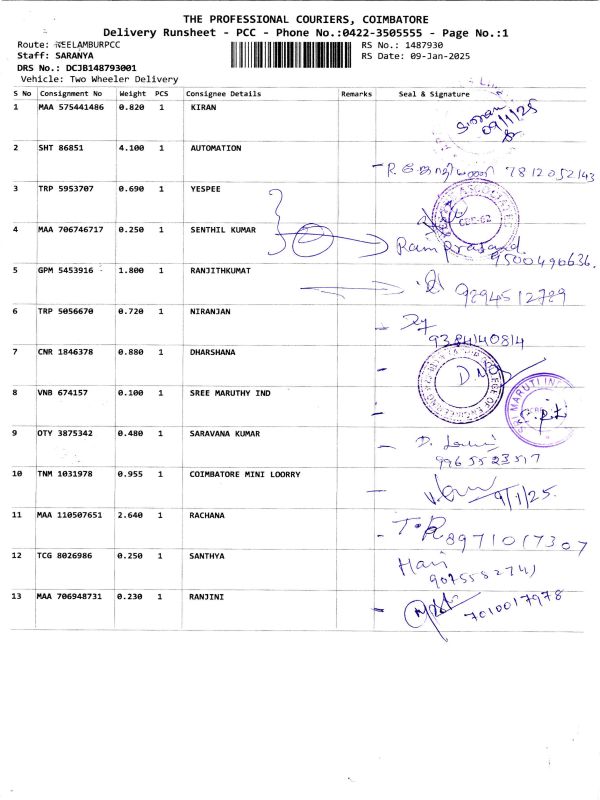 THE PROFESSIONAL COURIERS, COIMBATORE
Delivery Runsheet - PCC - Phone No.:0422-3505555 - Page No.:1
Route: NEELAMBURPCC RS No.: 1487930
Staff: SARANYA RS Date: 09-Jan-2025
DRS No.: DCJB148793001
Vehicle: Two Wheeler Delivery
S No Consignment No Weight PCS Consignee Details Remarks Seal & Signature
1 MAA 575441486 0.820 1 KIRAN 09/1/25
2 SHT 86851 4.100 1 AUTOMATION
7812052143
3 TRP 5953707 0.690 1 YESPEE
4 MAA 706746717 0.250 1 SENTHIL KUMAR
Ram prasand
9500490636.
5 GPM 5453916 1.800 1 RANJITHKUMAT
9894512789
6 TRP 5056670 0.720 1 NIRANJAN
9384140814
7 CNR 1846378 0.880 1 DHARSHANA
8 VNB 674157 0.100 1 SREE MARUTHY IND
9 OTY 3875342 0.480 1 SARAVANA KUMAR
9965523517
10 TNM 1031978 0.955 1 COIMBATORE MINI LOORRY
9/1/25.
11 MAA 110507651 2.640 1 RACHANA
8971017307
12 TCG 8026986 0.250 1 SANTHYA
Hari
9075582741
13 MAA 706948731 0.230 1 RANJINI
7010017978